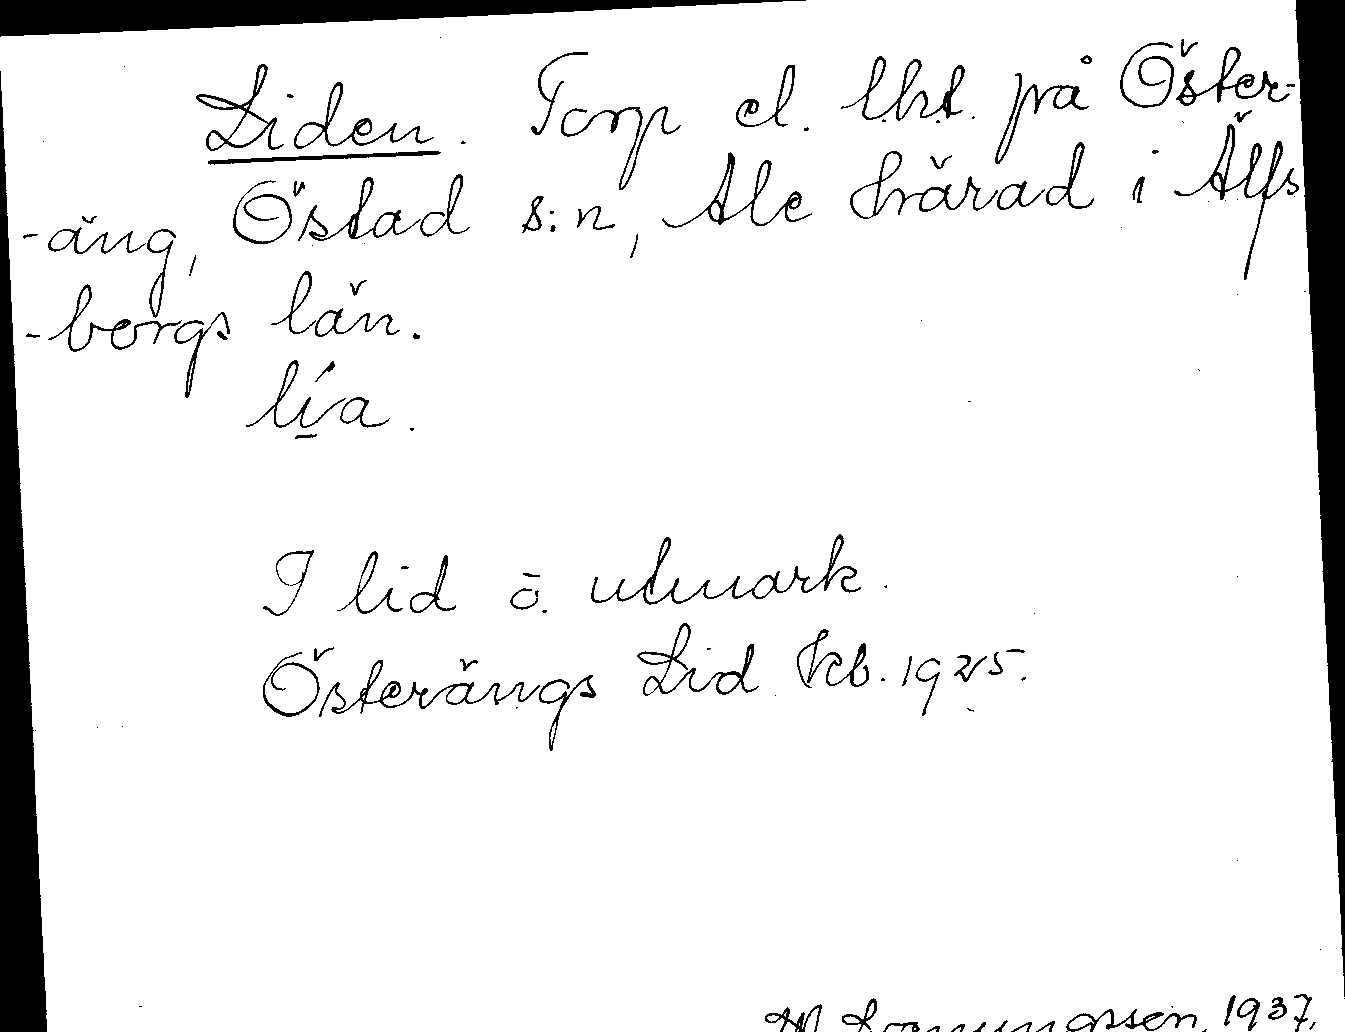 Liden. Torp el. lht. på Öster-
-äng, Östad s:n, Ale härad i Älfs
-borgs län.
lía.
I lid o. utmark.
Österängs Lid kb. 1925.
1937.